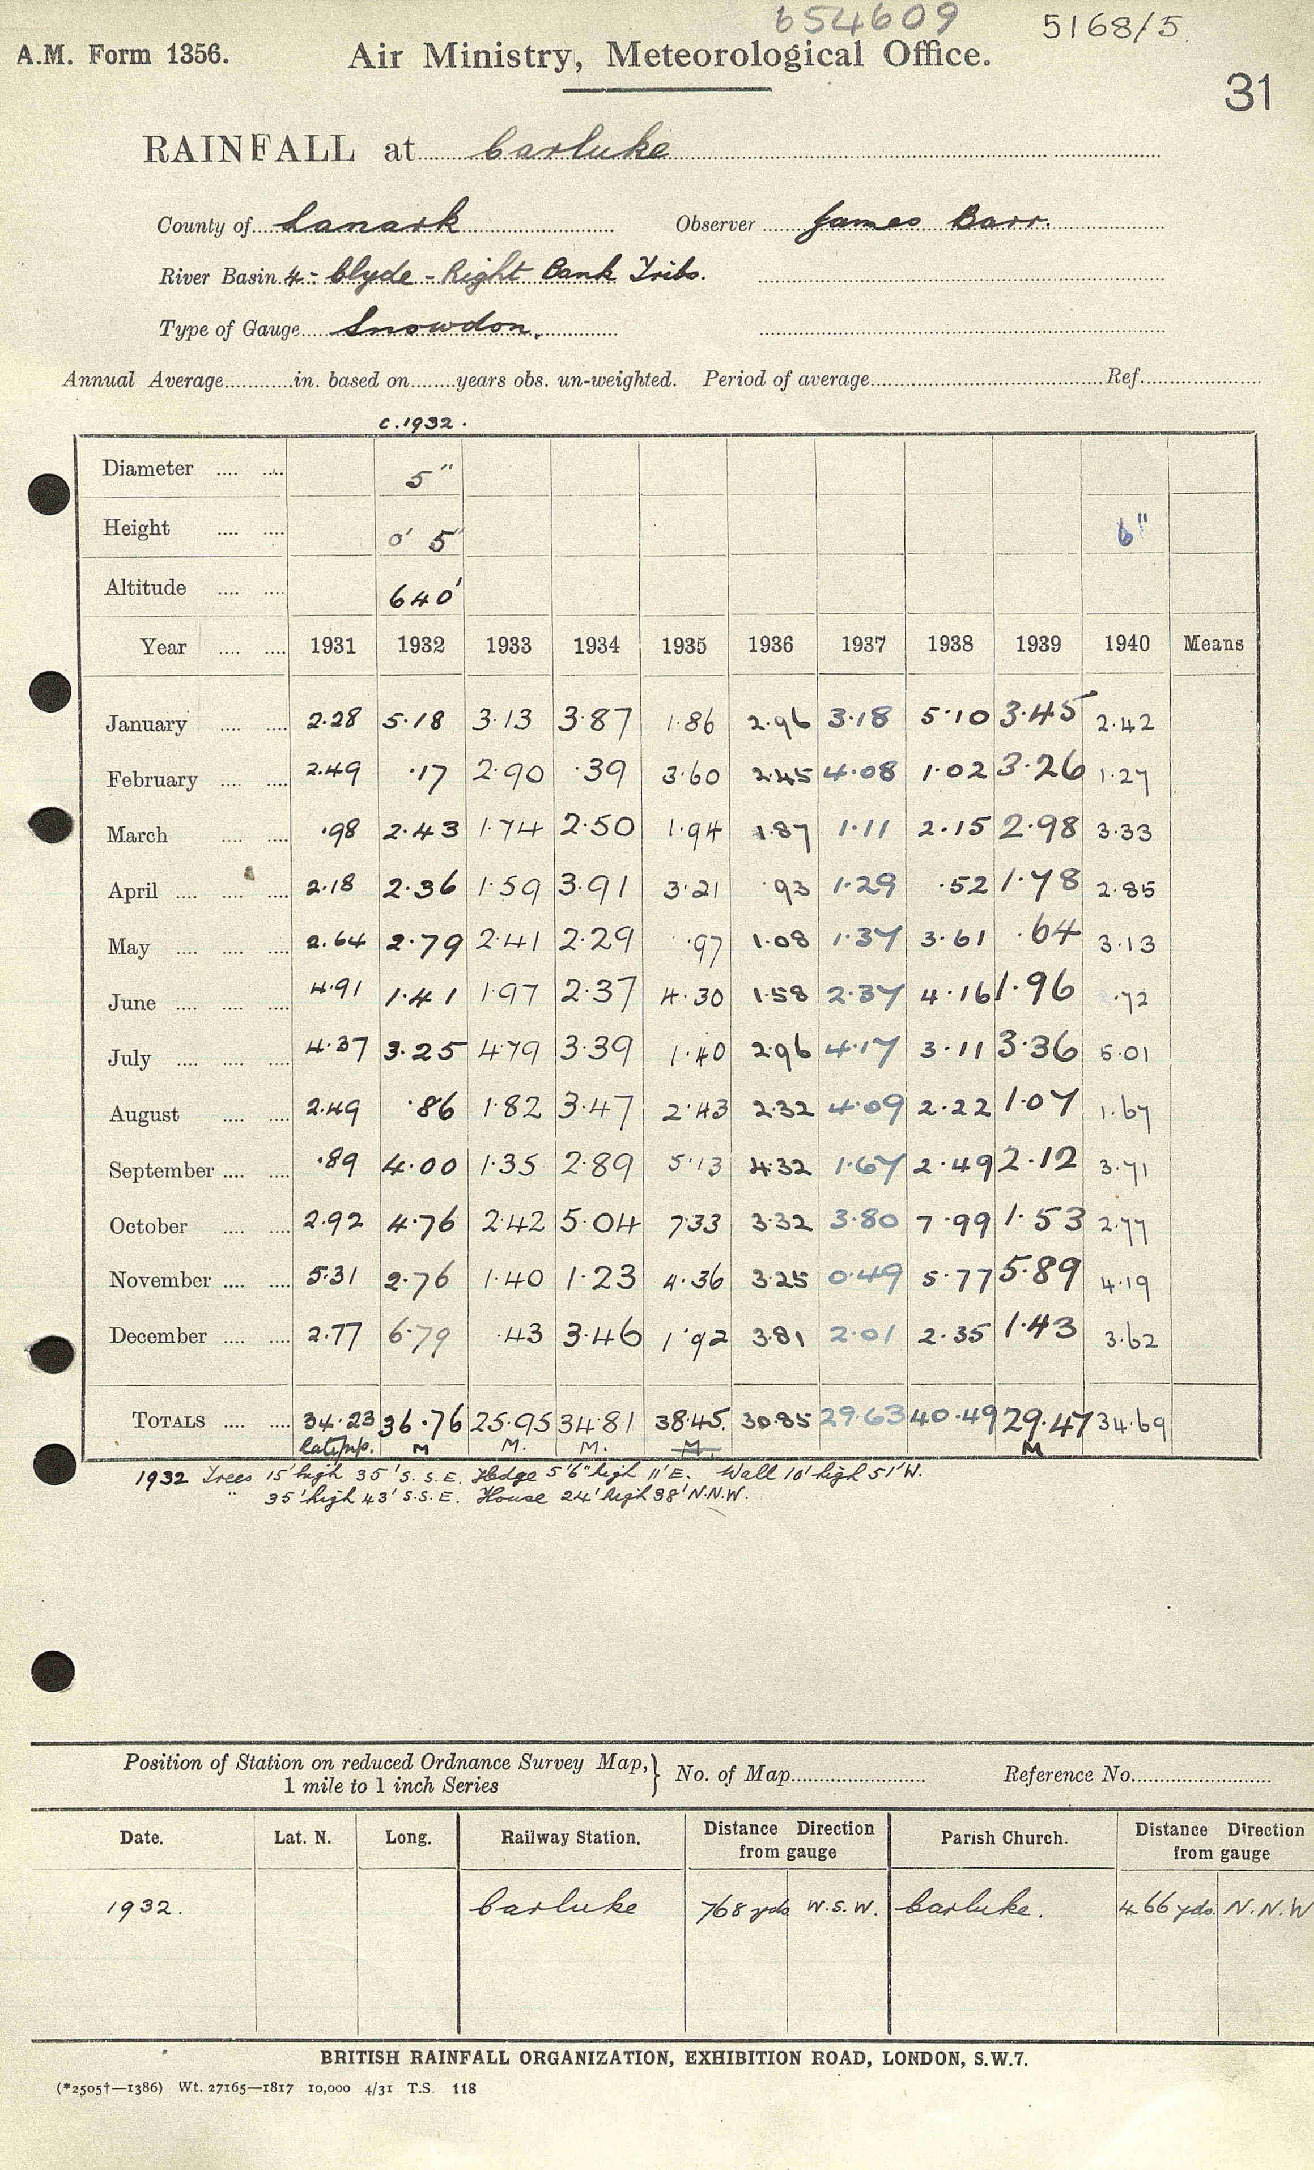 654609
5168/5
A.M. Form 1356.
Air Ministry, Meteorological Office.
31
RAINFALL at Carluke
County of Lanark Observer James Barr.
River Basin 4:- Clyde - Right Bank Tribs.
Type of Gauge Snowdon.
Annual Average............in. based on.......years obs. un-weighted. Period of average............Ref............
c.1932.
Diameter .... .... 5"
Height .... .... 0' 5" 6"
Altitude .... .... 640'
Year .... .... 1931 1932 1933 1934 1935 1936 1937 1938 1939 1940 Means
January .... .... 2.28 5.18 3.13 3.87 1.86 2.96 3.18 5.10 3.45 2.42
February .... .... 2.49 .17 2.90 .39 3.60 2.45 4.08 1.02 3.26 1.27
March .... .... .98 2.43 1.74 2.50 1.94 1.87 1.11 2.15 2.98 3.33
April .... .... .... 2.18 2.36 1.59 3.91 3.21 .93 1.29 .52 1.78 2.85
May .... .... .... 2.64 2.79 2.41 2.29 .97 1.08 1.37 3.61 .64 3.13
June .... .... .... 4.91 1.41 1.97 2.37 4.30 1.58 2.37 4.16 1.96 .72
July .... .... .... 4.37 3.25 4.79 3.39 1.40 2.96 4.17 3.11 3.36 5.01
August .... .... 2.49 .86 1.82 3.47 2.43 2.32 4.09 2.22 1.07 1.67
September .... .... .89 4.00 1.35 2.89 5.13 4.32 1.67 2.49 2.12 3.71
October .... .... 2.92 4.76 2.42 5.04 7.33 3.32 3.80 7.99 1.53 2.77
November .... .... 5.31 2.76 1.40 1.23 4.36 3.25 0.49 5.77 5.89 4.19
December .... .... 2.77 6.79 .43 3.46 1.92 3.81 2.01 2.35 1.43 3.62
TOTALS .... .... 34.23 36.76 25.95 34.81 38.45. 30.85 29.63 40.49 29.47 34.69
M M. M. M. M
1932 Trees 15' high 35' S.S.E. Hedge 5'6" high 11' E. Wall 10' high 51' W.
" 35' high 43' S.S.E. House 24' high 38' N.N.W.
Position of Station on reduced Ordnance Survey Map,} No. of Map............ Reference No............
1 mile to 1 inch Series
Date. Lat. N. Long. Railway Station. Distance Direction from gauge Parish Church. Distance Direction from gauge
1932. Carluke 768 yds W.S.W. Carluke. 466 yds. N.N.W
BRITISH RAINFALL ORGANIZATION, EXHIBITION ROAD, LONDON, S.W.7.
(*2505†—1386) Wt. 27165—1817 10,000 4/31 T.S. 118